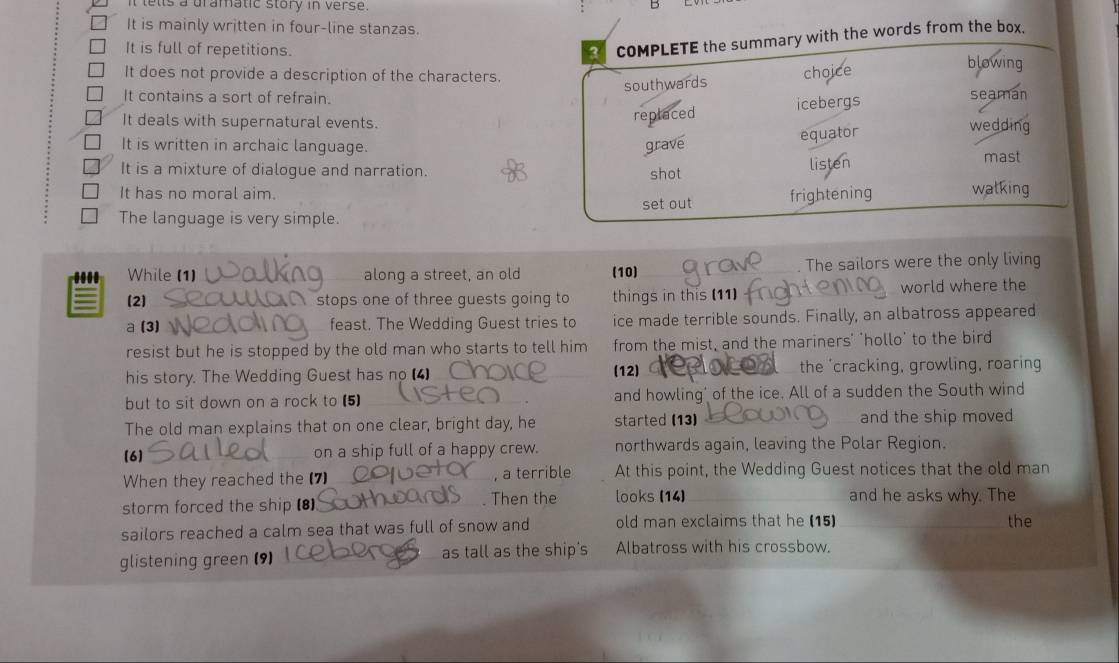 It tells a dramatic story in verse.
It is mainly written in four-line stanzas.
It is full of repetitions.
It does not provide a description of the characters.
It contains a sort of refrain.
It deals with supernatural events.
It is written in archaic language.
It is a mixture of dialogue and narration.
It has no moral aim.
The language is very simple.
B
3 COMPLETE the summary with the words from the box.
southwards choice blowing
replaced icebergs seaman
grave equator wedding
shot listen mast
set out frightening walking
While (1) Walking along a street, an old
(2) Seaman stops one of three guests going to
a (3) Wedding feast. The Wedding Guest tries to
resist but he is stopped by the old man who starts to tell him
his story. The Wedding Guest has no (4) Choice
but to sit down on a rock to (5) listen .
The old man explains that on one clear, bright day, he
(6) Sailed on a ship full of a happy crew.
When they reached the (7) equetor , a terrible
storm forced the ship (8) Southwards . Then the
sailors reached a calm sea that was full of snow and
glistening green (9) Icebergs as tall as the ship's
(10) grave . The sailors were the only living
things in this (11) frightening world where the
ice made terrible sounds. Finally, an albatross appeared
from the mist, and the mariners' 'hollo' to the bird
(12) replaced the 'cracking, growling, roaring
and howling' of the ice. All of a sudden the South wind
started (13) blowing and the ship moved
northwards again, leaving the Polar Region.
At this point, the Wedding Guest notices that the old man
looks (14) and he asks why. The
old man exclaims that he (15) the
Albatross with his crossbow.